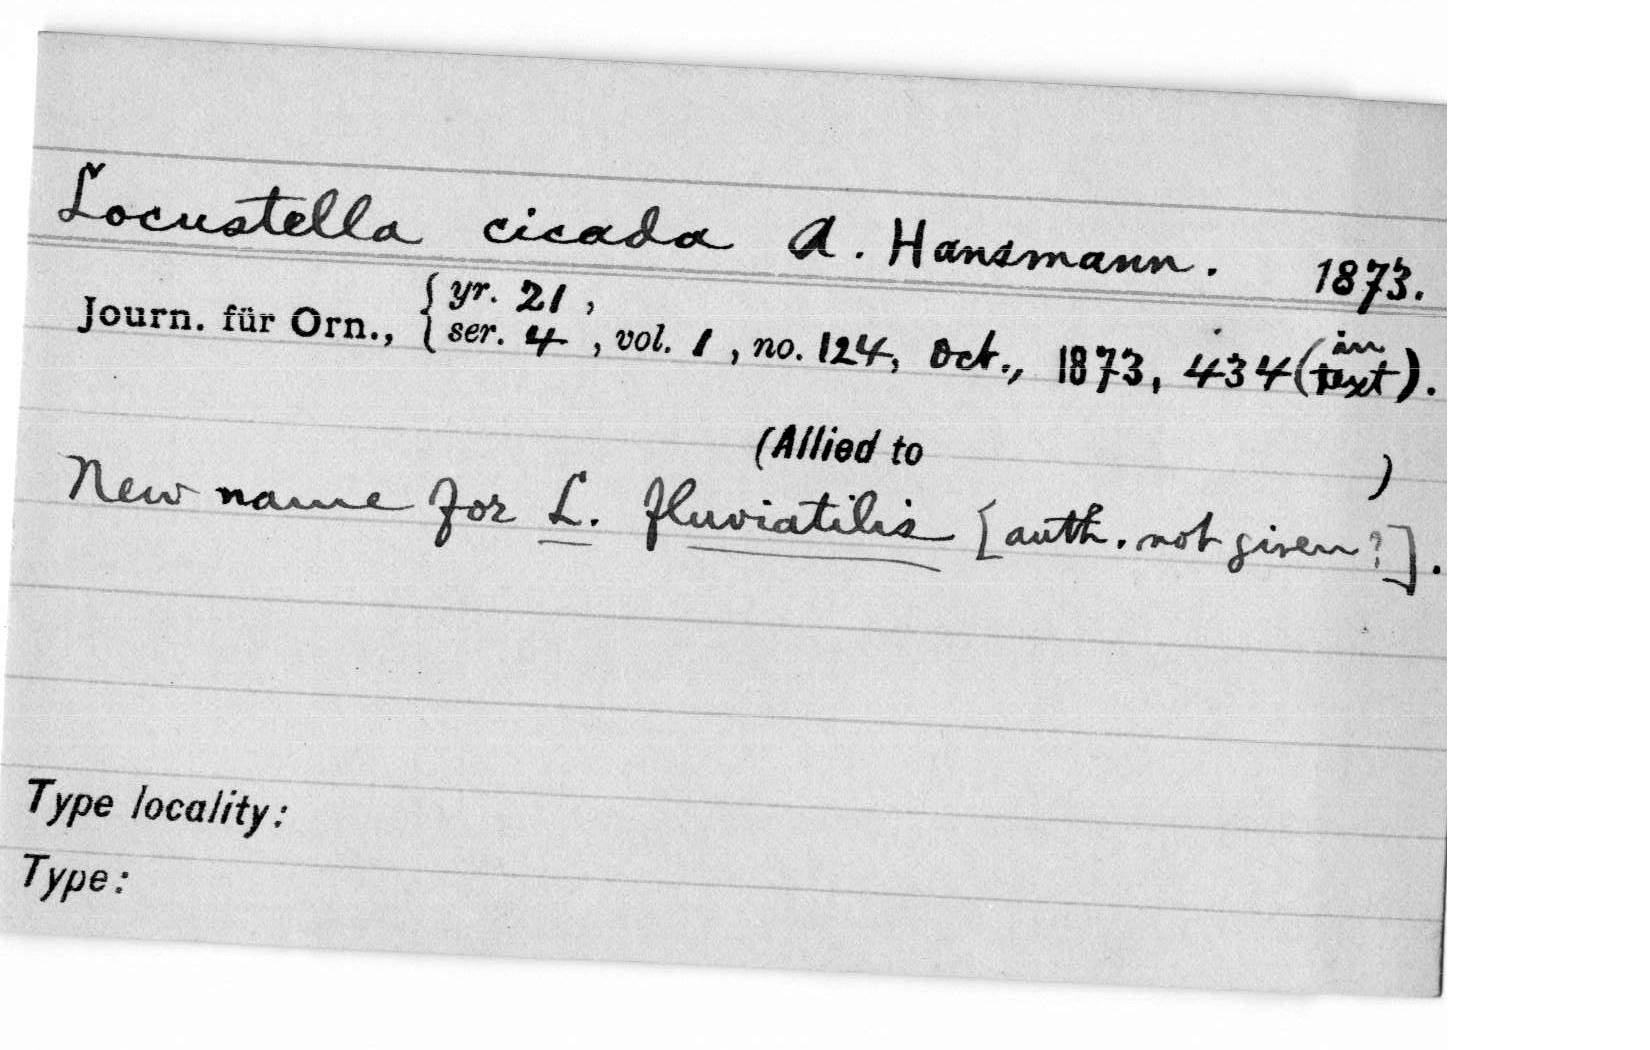 Locustella cicada A. Hansmann. 1873.
Journ. für Orn., { yr. 21 ,
ser. 4 , vol. 1 , no. 124, Oct., 1873, 434 (in text).
(Allied to )
New name for L. fluviatilis [auth. not given?].
Type locality:
Type: